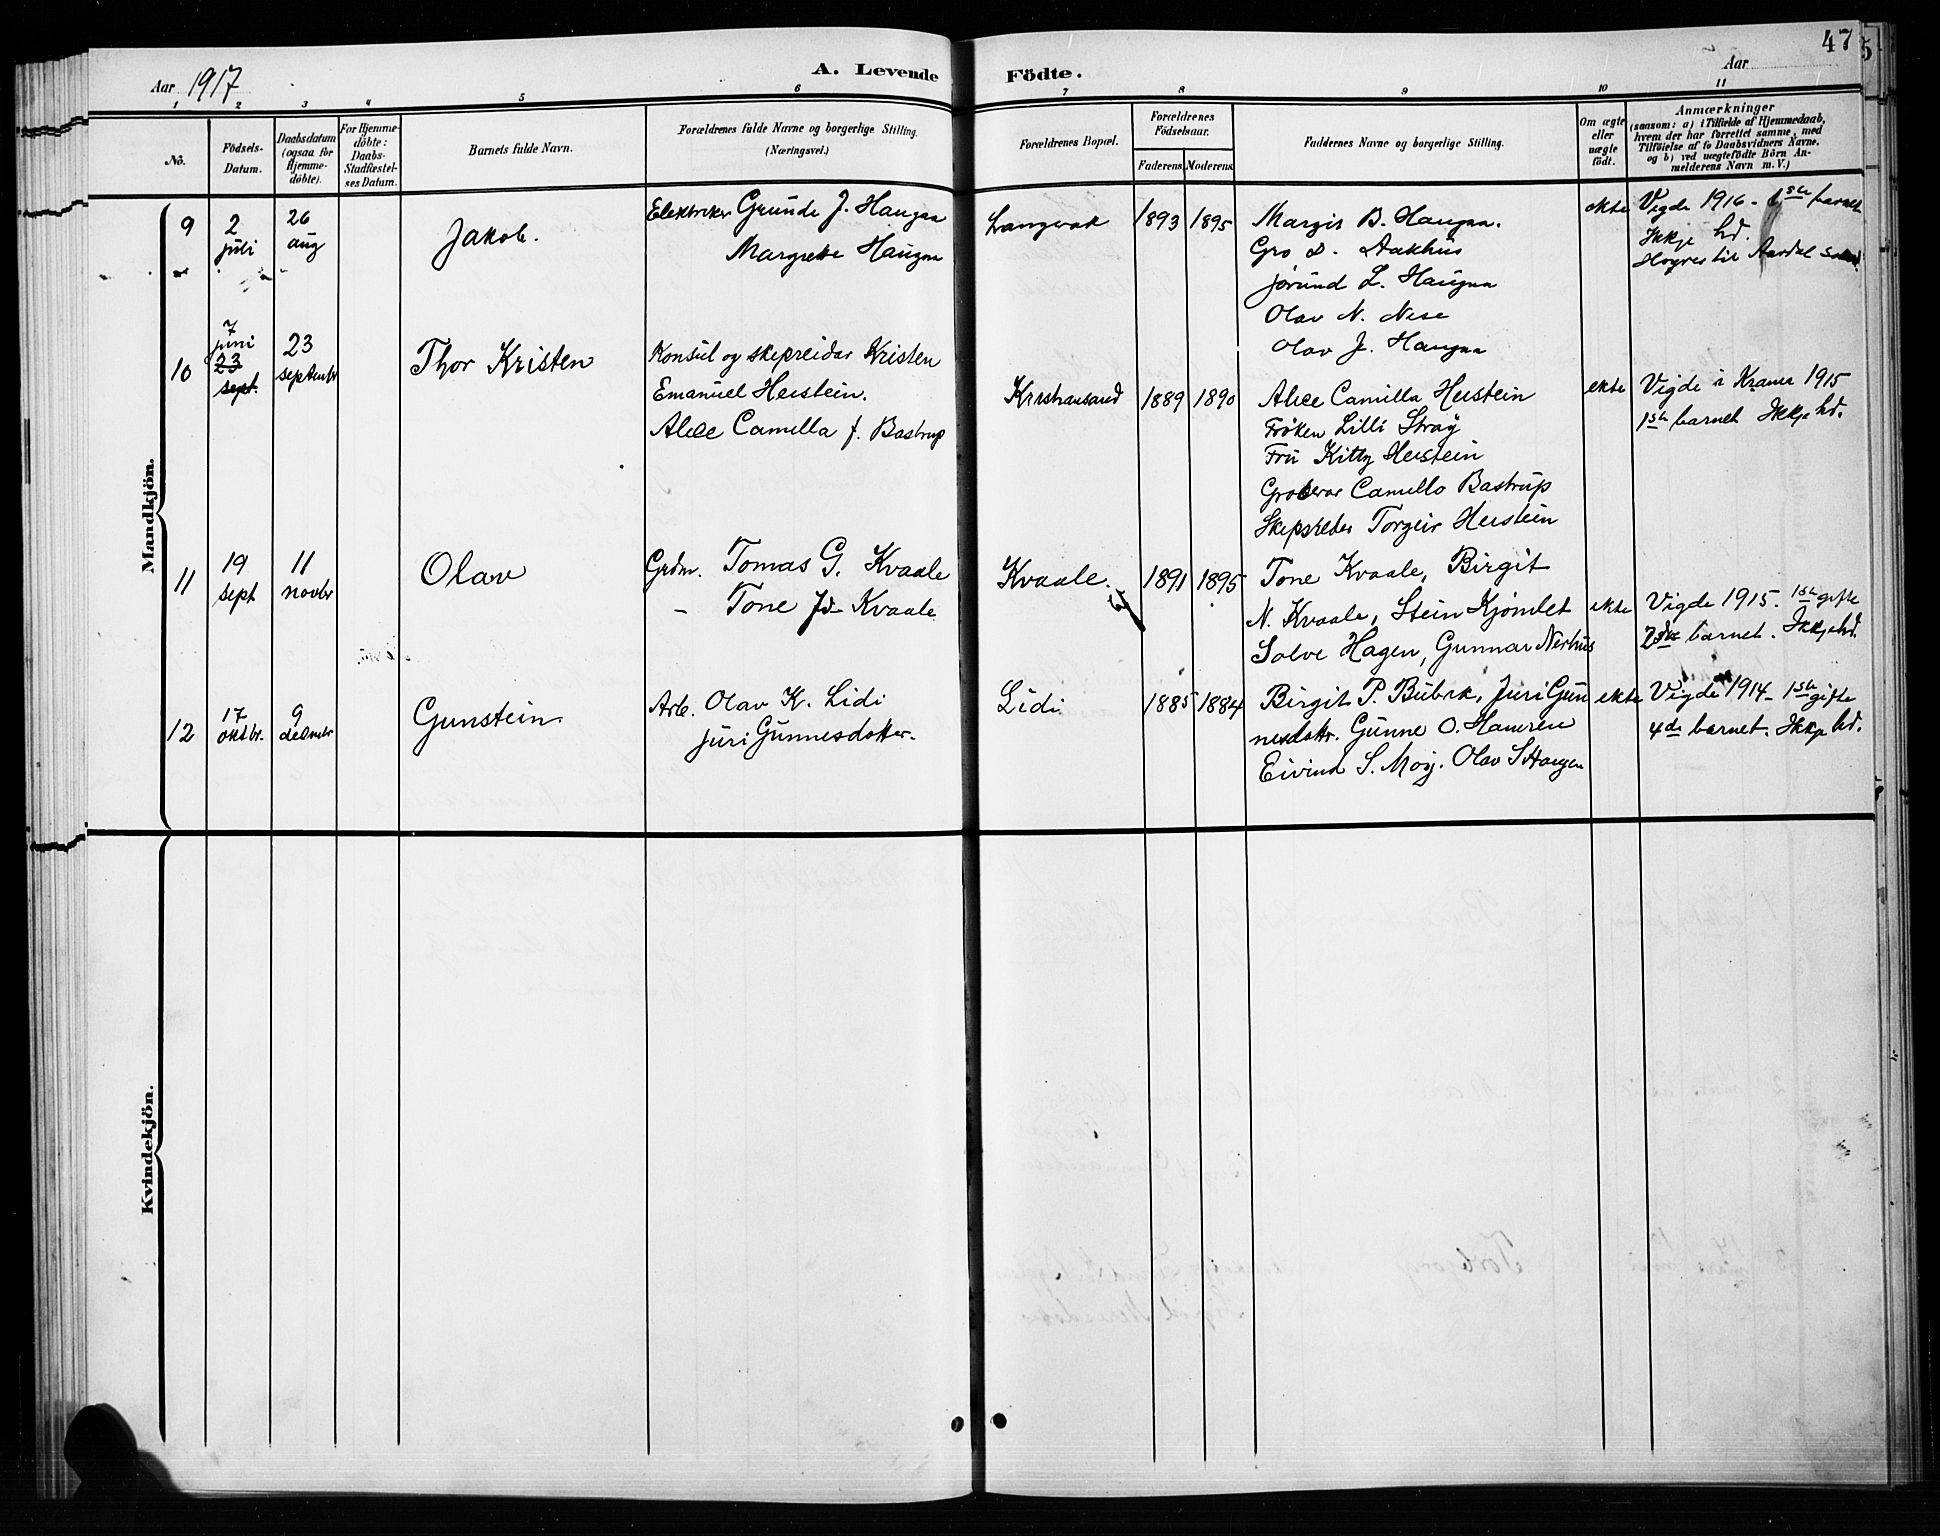 47
Aar 1917
A. Levende Födte.
Aar
1 2 3 4 5 6 7 8 9 10 11
No.
Födsels-
Datum.
Daabsdatum
(ogsaa for
Hjemme-
döbte).
For Hjemme-
döbte:
Daabs-
Stadfæstel-
ses Datum.
Barnets fulde Navn.
Forældrenes fulde Navne og borgerlige Stilling.
(Næringsvei.)
Forældrenes Bopæl.
Forældrenes
Födselsaar.
Faderens. Moderens.
Faddernes Navne og borgerlige Stilling.
Om ægte
eller
uægte
födt.
Anmærkninger
(saasom: a) i Tilfælde af Hjemmedaab,
hvem der har forrettet samme, med
Tilföielse af to Daabsvidners Navne,
og b) ved uægtefödte Börn An-
melderens Navn m. V.)
Mandkjön.
9
2
juli
26
aug
Jakob.
Elektriker Grunde J. Haugaa
Margrethe Haugaa
Langvak
1893 1895
Margit B. Haugaa.
Gro D. Aakhus
Jorund L. Haugaa
Olav N. Nese
Olav J. Haugaa
ekte
Vigde 1916 - 1ste barnet
Ikkje hd.
Höyrer til Aardal sokn.
10
7
juni
23
sept.
23
septembr
Thor Kristen
Konsul og skipreidar Kristen
Emanuel Heistein.
Alice Camilla f. Bastrup
Kristiansand
1889 1890
Alice Camilla Heistein
Fröken Lilli Stray
Fru Kitty Heistein
Groserar Camillo Bastrup
Skipsreder Torgeir Heistein
ekte
Vigde i Kraner 1915
1ste barnet Ikkje hd.
11
19
sept
11
novbr
Olav
Grdm. Tomas G. Kvaale
- Tone Jd. Kvaale
Kvaale.
1891 1895
Tone Kvaale, Birgit
N. Kvaale, Stein Kjömlet
Solve Hagen, Gunnar Nerhus
ekte
Vigde 1915. 1ste gifte
2dre barnet. Ikkje hd.
12
17
oktbr.
9
desmbr
Gunstein
Arb. Olav K. Lidi
Juri Gunnesdotter.
Lidi
1885 1884
Birgit P. Bubak, Juri Gun
nesdotr. Gunne O. Hamren
Eivind S. Moy. Olav S Haugen
ekte
Vigde 1914 - 1ste gifte
4de barnet. Ikkje hd.
Kvindekjön.